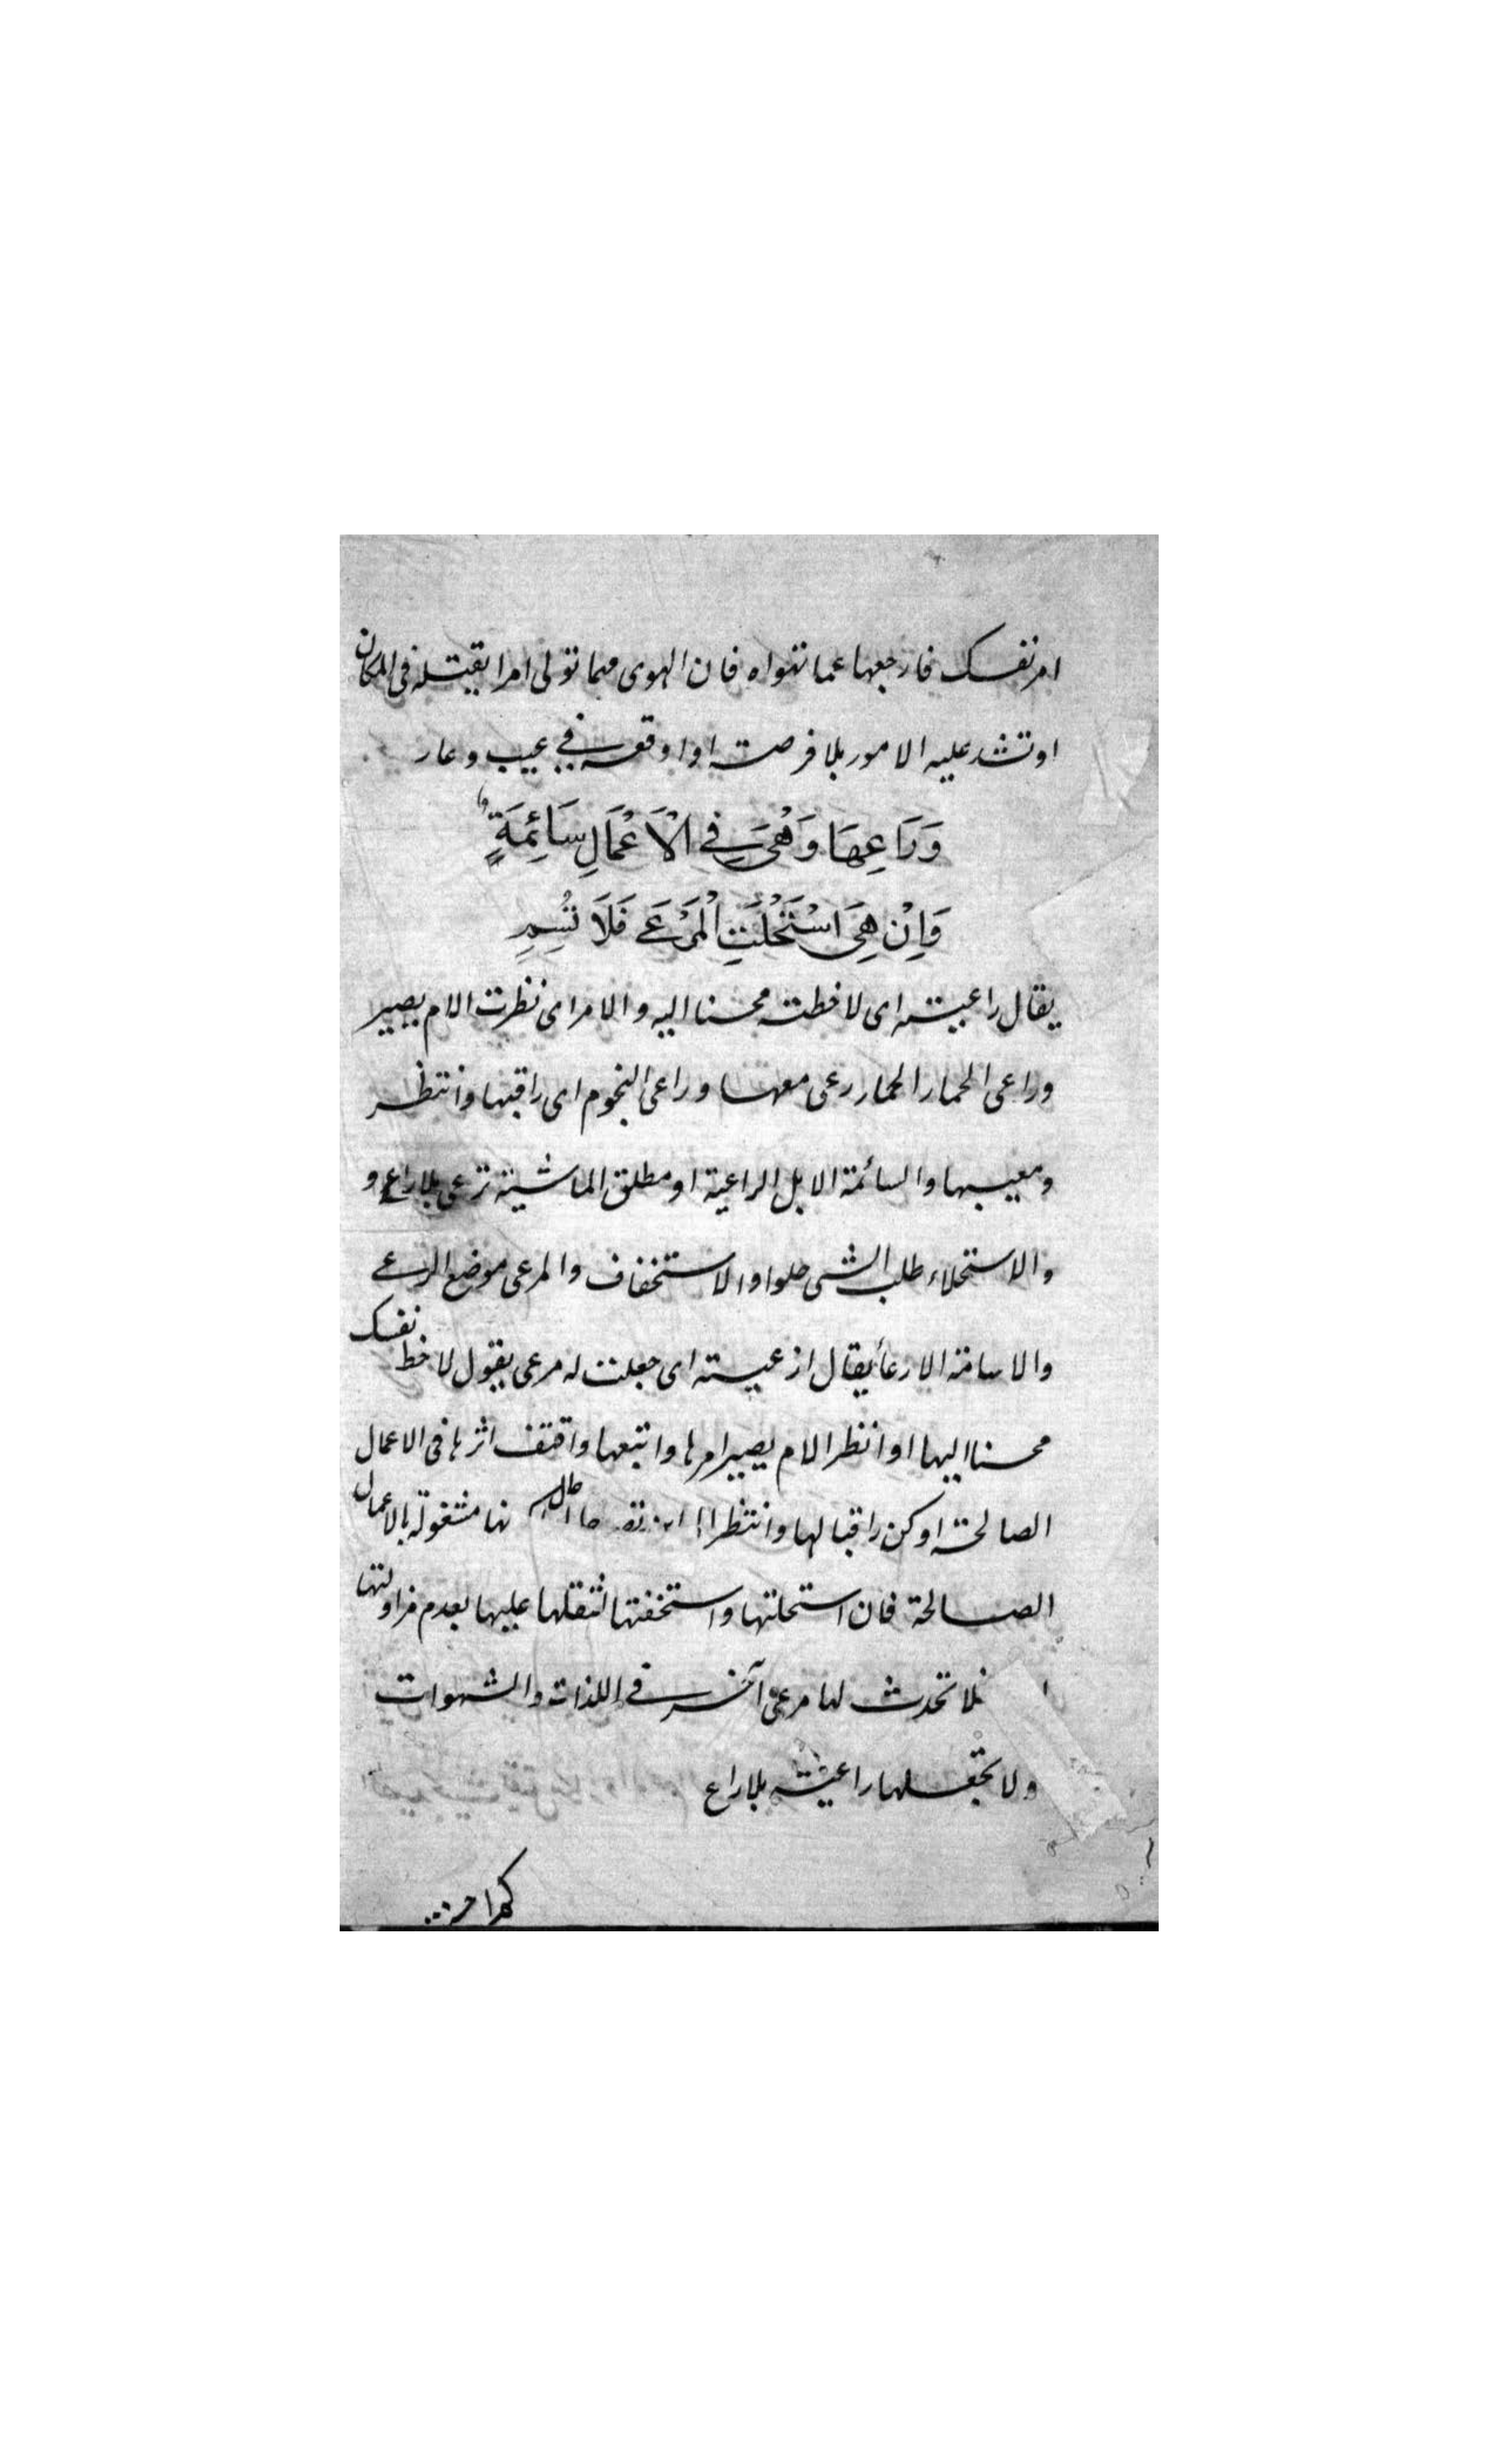 امر نفسك فارجعها عما تهواه فان الهوى مهما تولى امرا يقتله فى المكان
او تشد عليه الامور بلا فرصة او اوقعه في عيب وعار
وَرَاعِهَا وَهْيَ فِي الْاَعْمَالِ سَائِمَةٌ
وَاِنْ هِيَ اسْتَحْلَتِ الْمَرْعَى فَلَا تُسِمِ
يقال راعيته اى لاحظته محسنا اليه والامر اى نظرت الام يصير
وراعى الحمار الحمار رعى معها وراعى النجوم اى راقبها وانتظر
ومغيبها والسائمة الابل الراعية او مطلق الماشية ترعى بلا راع و
والاستحلاء طلب الشى حلوا والاستخفاف والمرعى موضع الرعى
والاسامة الارعأ يقال ارعيته اى جعلت له مرعى يقول لاحظ نفسك
محسنا اليها او انظر الام يصير امرها واتبعها واقتف اثرها فى الاعمال
الصالحة او كن راقبا لها وانتظر نها مشغولة بالاعمال
الصالحة فان استحلتها واستخفتها لثقلها عليها بعدم مزاولتها
فلا تحدث لها مرعى آخر في اللذات والشهوات
ولا تجعلها راعية بلا راع